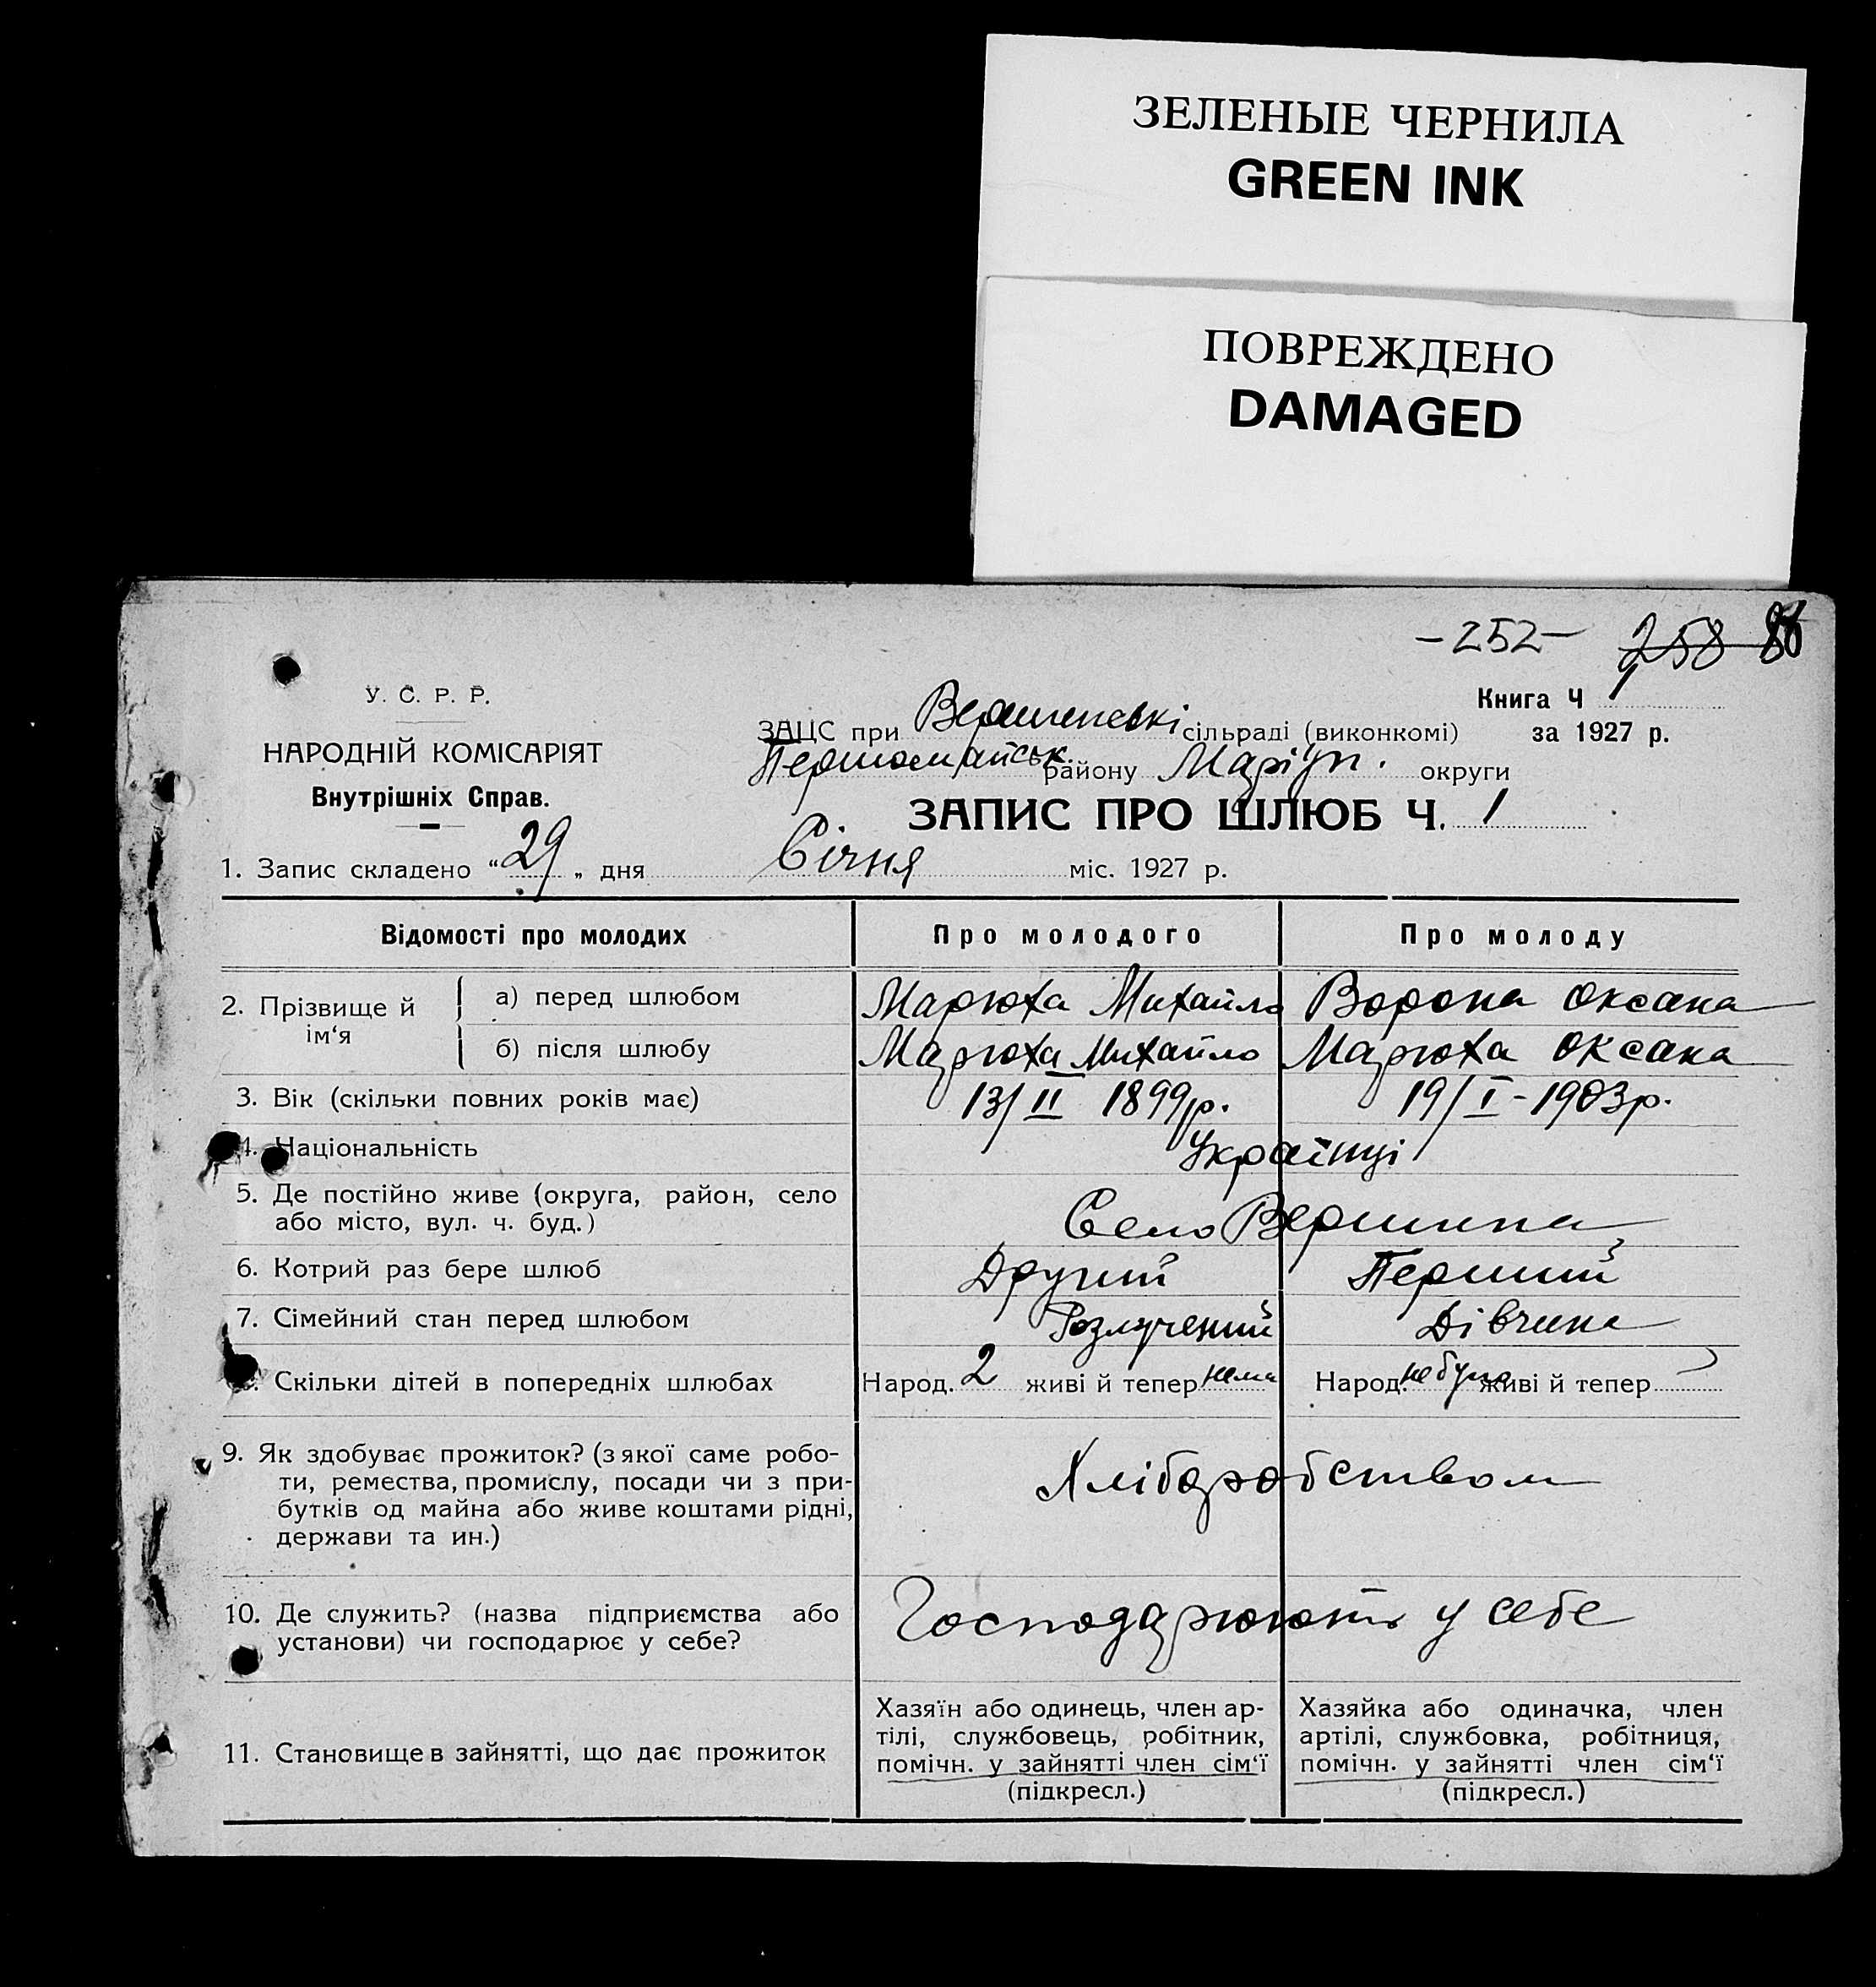 ЗЕЛЕНЫЕ ЧЕРНИЛА
GREEN INK
ПОВРЕЖДЕНО
DAMAGED
-252- 258
У. С. Р. Р.
НАРОДНІЙ КОМІСАРІЯТ
Внутрішніх Справ.
Книга Ч 1
ЗАЦС при сільраді (виконкомі) за 1927 р.
Першомайськ. району Маріуп. округи
ЗАПИС ПРО ШЛЮБ Ч. 1
1. Запис складено “ 29 „ дня Січня міс. 1927 р.
Відомості про молодих Про молодого Про молоду
2. Прізвище й ім‘я
а) перед шлюбом Марюха Михайло Ворона Оксана
б) після шлюбу Марюха Михайло Марюха Оксана
3. Вік (скільки повних років має) 13/II 1899 р. 19/I-1903 р.
4. Національність Українці
5. Де постійно живе (округа, район, село
або місто, вул. ч. буд.) Село Вершина
6. Котрий раз бере шлюб Другий Перший
7. Сімейний стан перед шлюбом Розлучений Дівчина
Скільки дітей в попередніх шлюбах Народ. 2 живі й тепер нема Народ. не було живі й тепер
9. Як здобуває прожиток? (з якої саме робо-
ти, ремества, промислу, посади чи з при-
бутків од майна або живе коштами рідні,
держави та ин.)
Хліборобством
10. Де служить? (назва підприємства або
установи) чи господарює у себе?
Господарюють у себе
11. Становище в зайнятті, що дає прожиток
Хазяїн або одинець, член ар-
тілі, службовець, робітник,
помічн. у зайнятті член сім‘ї
(підкресл.)
Хазяйка або одиначка, член
артілі, службовка, робітниця,
помічн. у зайнятті член сім‘ї
(підкресл.)